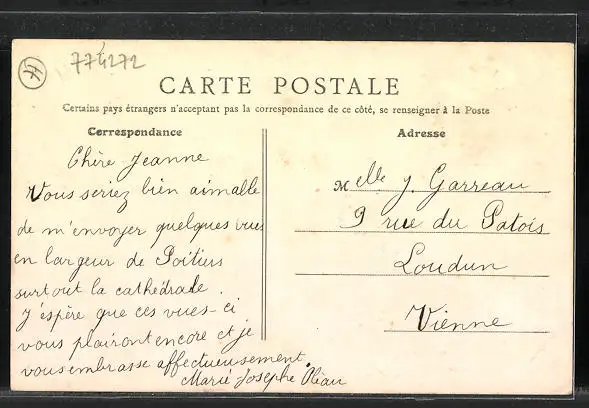 774272
CARTE POSTALE
Certains pays étrangers n'acceptant pas la correspondance de ce côté, se renseigner à la Poste
Correspondance
Adresse
Chère Jeanne
Vous seriez bien aimable
de m'envoyer quelques vues
en largeur de Poitiers
surtout la cathédrale.
J'espère que ces vues-ci
vous plairont encore et je
vous embrasse affectueusement.
Marie Josephe
Melle J. Garreau
9 rue du Patois
Loudun
Vienne